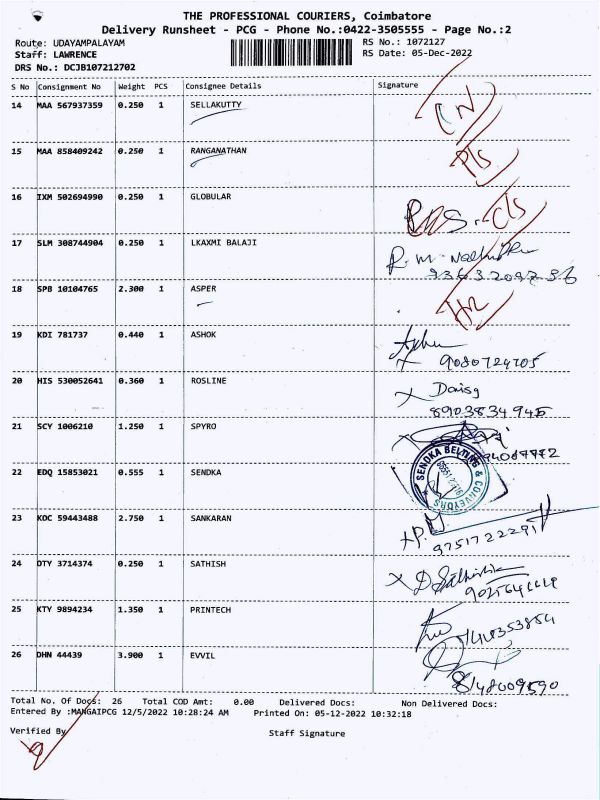 THE PROFESSIONAL COURIERS, Coimbatore
Delivery Runsheet - PCG - Phone No.:0422-3505555 - Page No.:2
Route: UDAYAMPALAYAM RS No.: 1072127
Staff: LAWRENCE RS Date: 05-Dec-2022
DRS No.: DCJB107212702
S No Consignment No Weight PCS Consignee Details Signature
14 MAA 567937359 0.250 1 SELLAKUTTY
15 MAA 858409242 0.250 1 RANGANATHAN
16 IXM 502694990 0.250 1 GLOBULAR
17 SLM 308744904 0.250 1 LKAXMI BALAJI
18 SPB 10104765 2.300 1 ASPER
19 KDI 781737 0.440 1 ASHOK
9080724705
20 HIS 530052641 0.360 1 ROSLINE Daisy
8903834945
21 SCY 1006210 1.250 1 SPYRO
22 EDQ 15853021 0.555 1 SENDKA SENDKA BELTING & CONVEYORS
23 KOC 59443488 2.750 1 SANKARAN
9751722291
24 OTY 3714374 0.250 1 SATHISH
25 KTY 9894234 1.350 1 PRINTECH
26 DHN 44439 3.900 1 EVVIL
8148009590
Total No. Of Docs: 26 Total COD Amt: 0.00 Delivered Docs: Non Delivered Docs:
Entered By :MANGAIPCG 12/5/2022 10:28:24 AM Printed On: 05-12-2022 10:32:18
Verified By Staff Signature